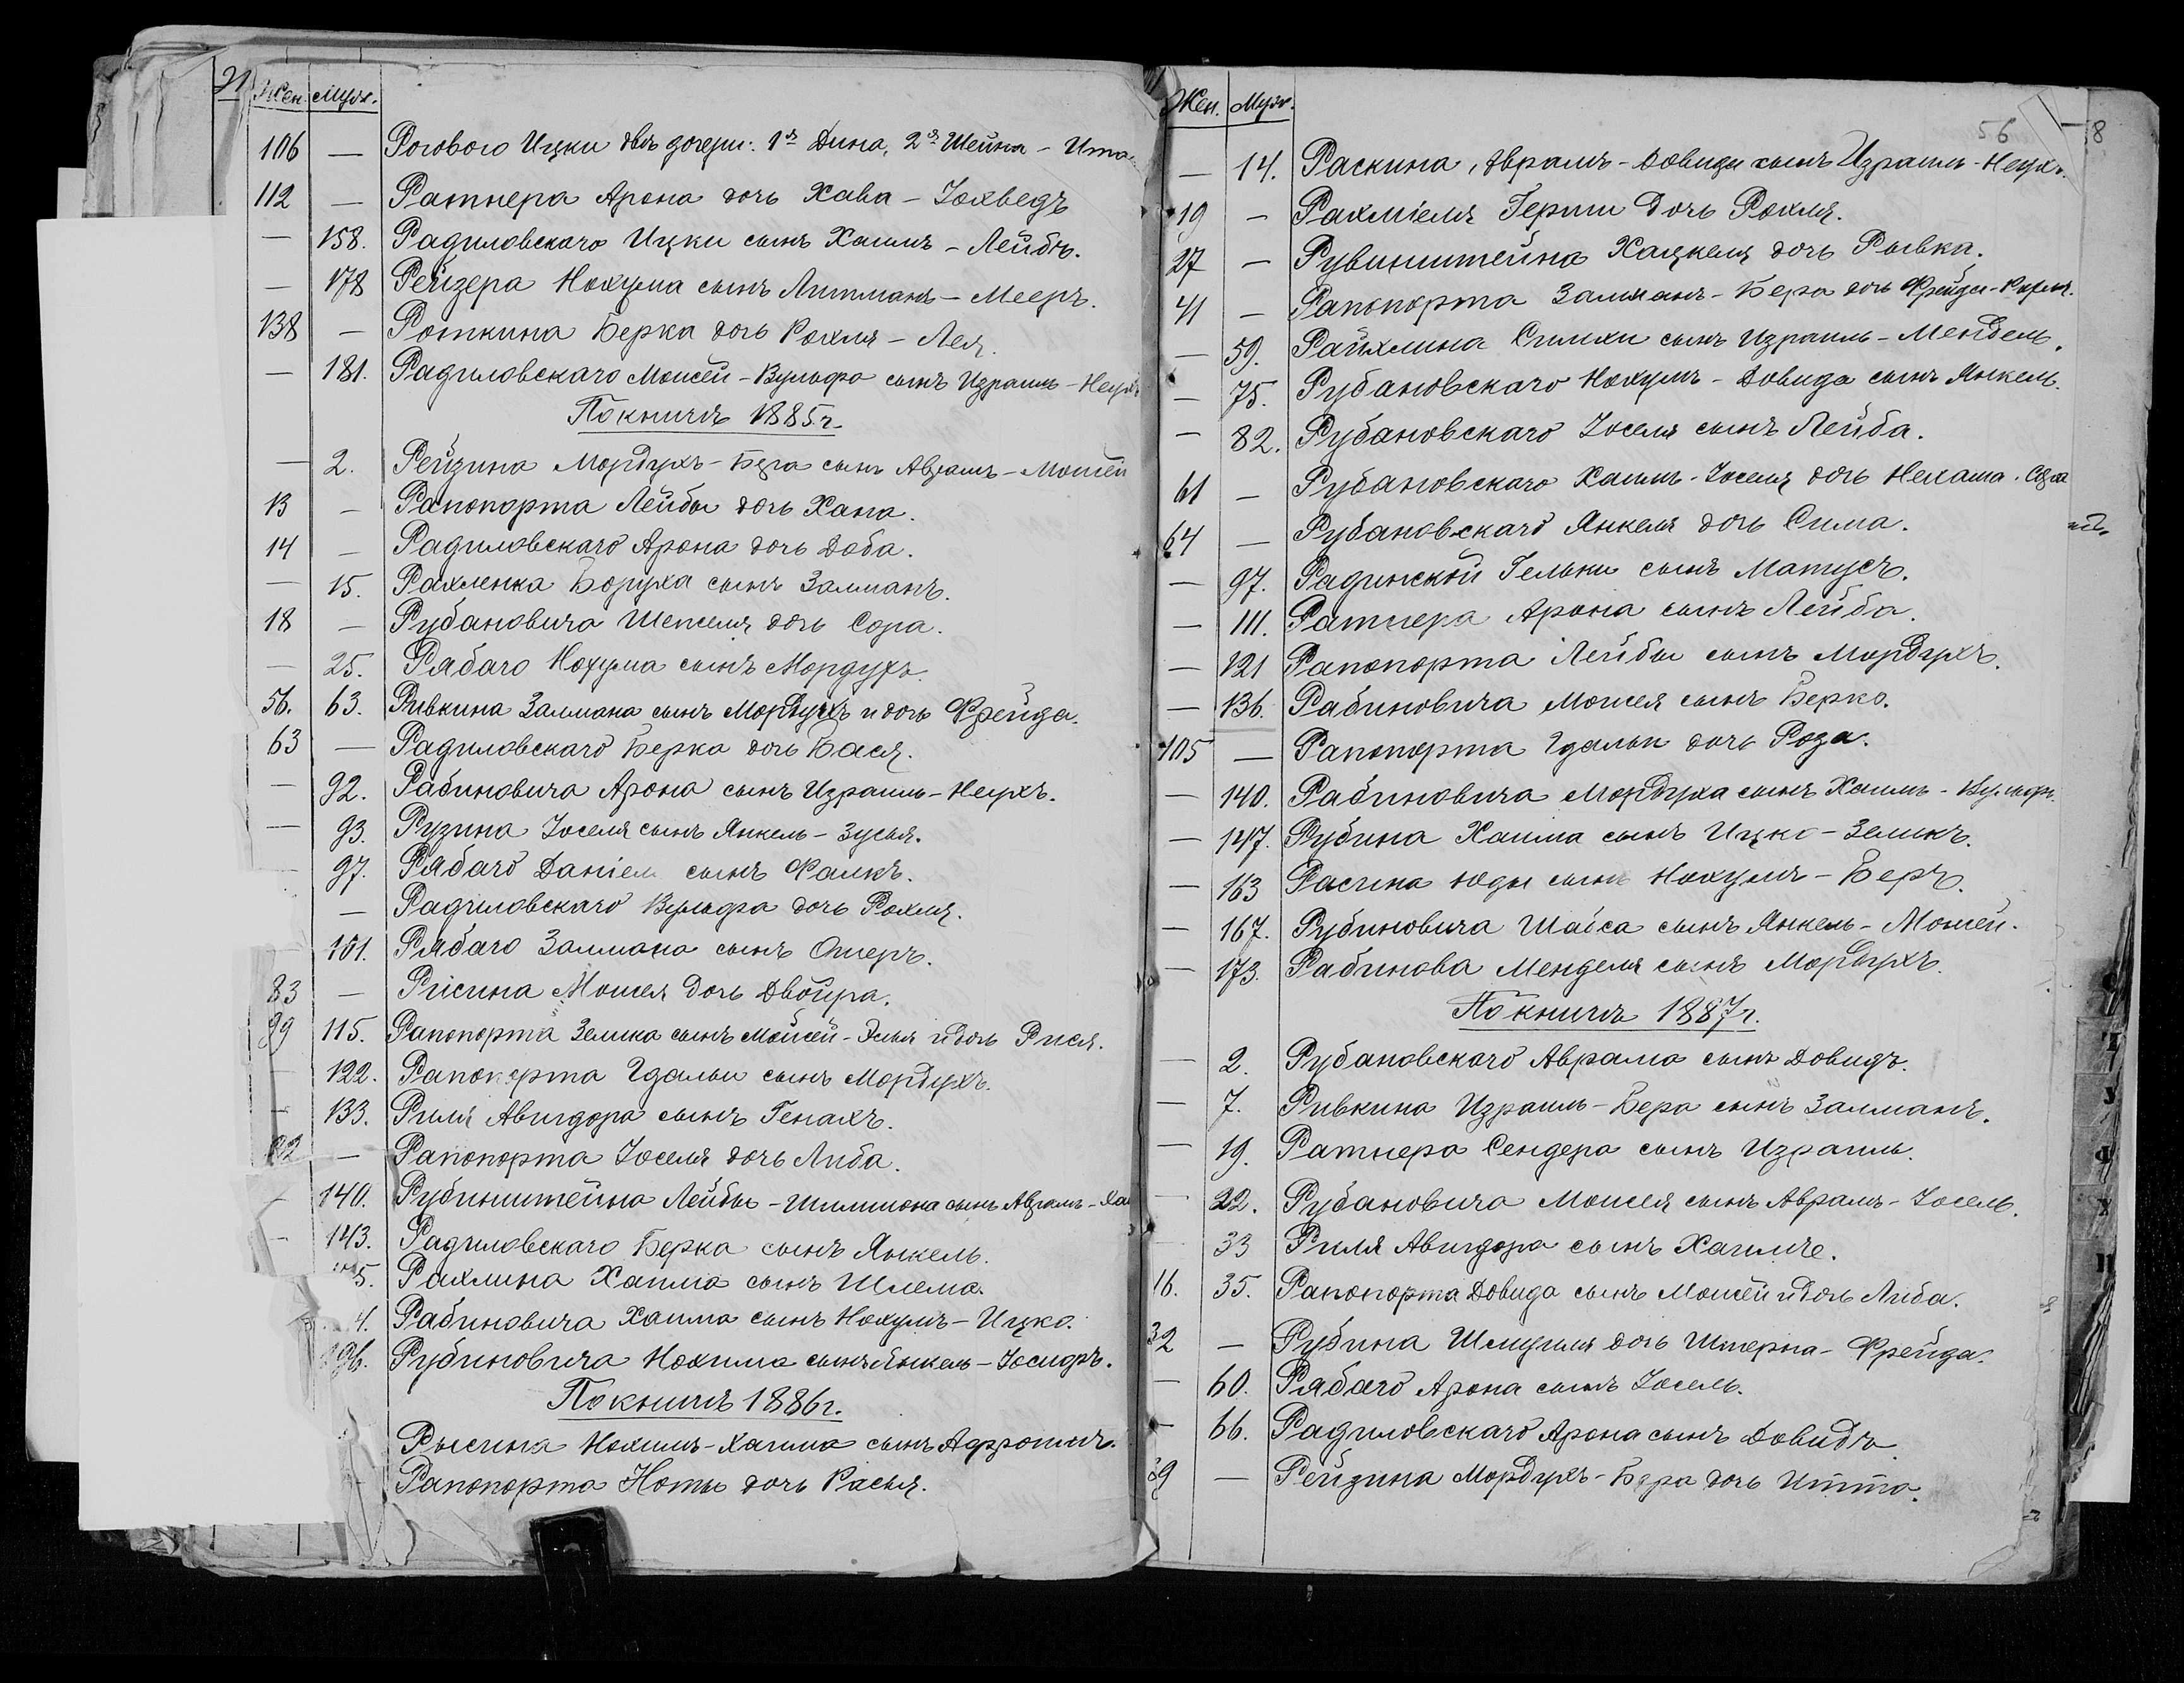 21 Жен. Муж.
106 — Рогового Ицки двѣ дочери: 1я Дина, 2я Шейна - Ита
112 — Ратнера Арона дочь Хава - Іохведъ
— 158. Радиловскаго Ицки сынъ Хаимъ - Лейбъ.
— 178 Рейзера Нохума сынъ Липманъ - Мееръ.
138 — Роткина Берка дочь Рохля - Лея.
— 181. Радиловскаго Моисей - Вульфа сынъ Израиль - Неухъ
По книгѣ 1885 г.
— 2. Рейзина Мордухъ - Бера сынъ Абрамъ - Мошей
13 — Рапопорта Лейбы дочь Хана.
14 — Радиловскаго Арона дочь Доба.
— 15. Рахленка Боруха сынъ Залманъ.
18 — Рубановича Шепселя дочь Сора.
— 25. Рябаго Нохума сынъ Мордухъ.
56. 63. Ривкина Залмана сынъ Мордухъ и дочь Фрейда.
63 — Радиловскаго Берка дочь Бася.
— 92. Рабиновича Арона сынъ Израиль - Неухъ.
— 93. Рузина Іоселя сынъ Янкель - Зусья.
97. Рябаго Даніеля сынъ Фалкъ.
— Радиловскаго Вульфа дочь Рохля.
— 101. Рябаго Залмана сынъ Ошеръ.
83 — Рисина Мошея дочь Двойра.
99 115. Рапопорта Зелика сынъ Мойсей - Элья и дочь Рися.
122. Рапопорта Гдальи сынъ Мордухъ.
— 133. Риля Авигдора сынъ Генахъ.
— Рапопорта Іоселя дочь Либа.
— 140. Рубинштейна Лейбы - Шлиомона сынъ Абрамъ - Хаи
— 143. Радиловскаго Берка сынъ Янкель.
5. Рахлина Хаима сынъ Шлема.
4. Рабиновича Хаима сынъ Нохумъ - Ицко.
96. Рубиновича Нохима сынъ Янкель - Іосифъ.
По книгѣ 1886 г.
Рысина Нохимъ - Хаима сынъ
Рапопорта Ноты дочь Расья.
Жен. Муж.
56 8
— 14. Раскина, Аврамъ - Довида сынъ Израиль - Неухъ.
19 — Рахміеля Герши дочь Рохля.
27 — Рувинштейна Хацкеля дочь Рывка.
41 — Рапопорта Залманъ - Бера дочь Фрейда -
— 59. Райхлина Симхи сынъ Израиль - Мендель.
— 75. Рубановскаго Нохумъ - Довида сынъ Янкель.
— 82. Рубановскаго Іоселя сынъ Лейба.
61 — Рубановскаго Хаимъ - Іоселя дочь Нехама - Сора
64 — Рубановскаго Янкеля дочь Сима.
— 97. Радинской Гельки сынъ Матусъ.
— 111. Ратнера Арона сынъ Лейба.
— 121 Рапопорта Лейбы сынъ Мордухъ.
— 136. Рабиновича Мошея сынъ Берко.
105 — Рапопорта Гдальи дочь Роза.
— 140. Рабиновича Мордуха сынъ Хаимъ - Вульфъ.
— 147. Рубина Хаима сынъ Ицко - Зеликъ.
— 163 Расина Юды сынъ Нохумъ - Беръ.
— 167. Рубиновича Шаіса сынъ Янкель - Мошей.
— 173. Рабинова Менделя сынъ Мордухъ.
По книгѣ 1887 г.
— 2. Рубановскаго Аврама сынъ Довидъ.
— 7. Ривкина Израиль - Бера сынъ Залманъ.
— 19. Ратнера Сендера сынъ Израиль.
— 22. Рубановича Моисея сынъ Абрамъ - Іосель.
33 Риля Авигдора сынъ Хаимче.
16. 35. Рапопорта Довида сынъ Мошей и дочь Либа.
32 — Рубина Шмуиля дочь Штерна - Фрейда.
— 60. Рябаго Арона сынъ Іосель.
— 66. Радиловскаго Арона сынъ Довидъ
39 — Рейзина Мордухъ - Бера дочь Итта.
У
Ф
Х